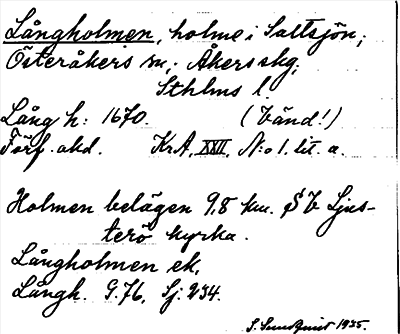 Långholmen, holme i Saltsjön;
Österåkers sn, Åkers skg,
Sthlms l.
Lång h: 1670. (Vänd!)
Förf. akd. KrA, XXII, N:o 1. lit. a.
Holmen belägen 9,8 km. S V Ljus-
terö kyrka.
Långholmen ek,
Långh. G. 76, Sj: 234.
S. Sundquist 1935.